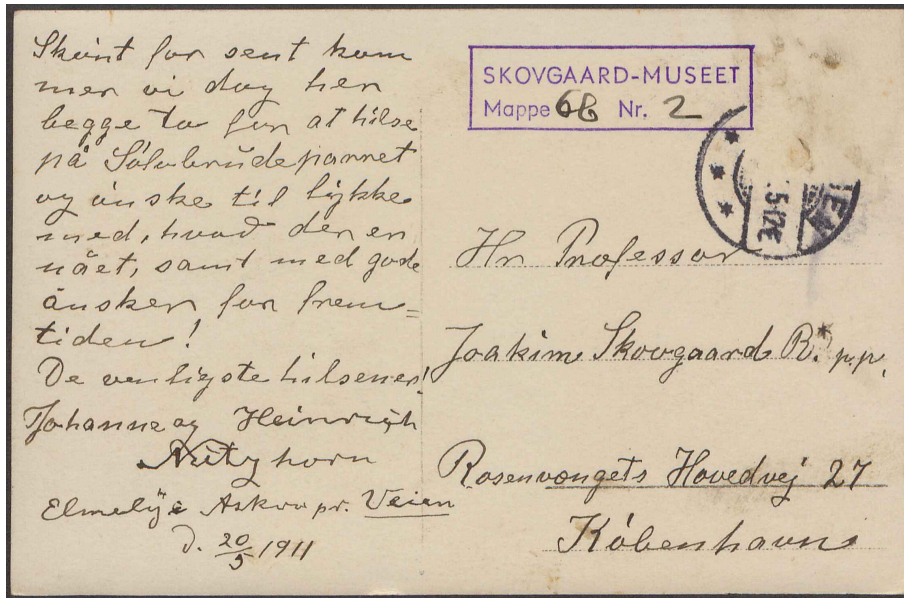 Skønt for sent kom
mer vi dog her
begge to for at hilse
på Sølvbrudeparret
og ønske til lykke
med, hvad der er
nået, samt med gode
ønsker for frem=
tiden!
De venligste hilsener!
Johanne og Heinrich
horn
Askov pr. Veien
d. 20/5 1911
SKOVGAARD-MUSEET
Mappe 6B Nr. 2
5-12E
Hr Professor
Joakim Skovgaard R.* p.p.
Rosenvængets Hovedvej 27
København